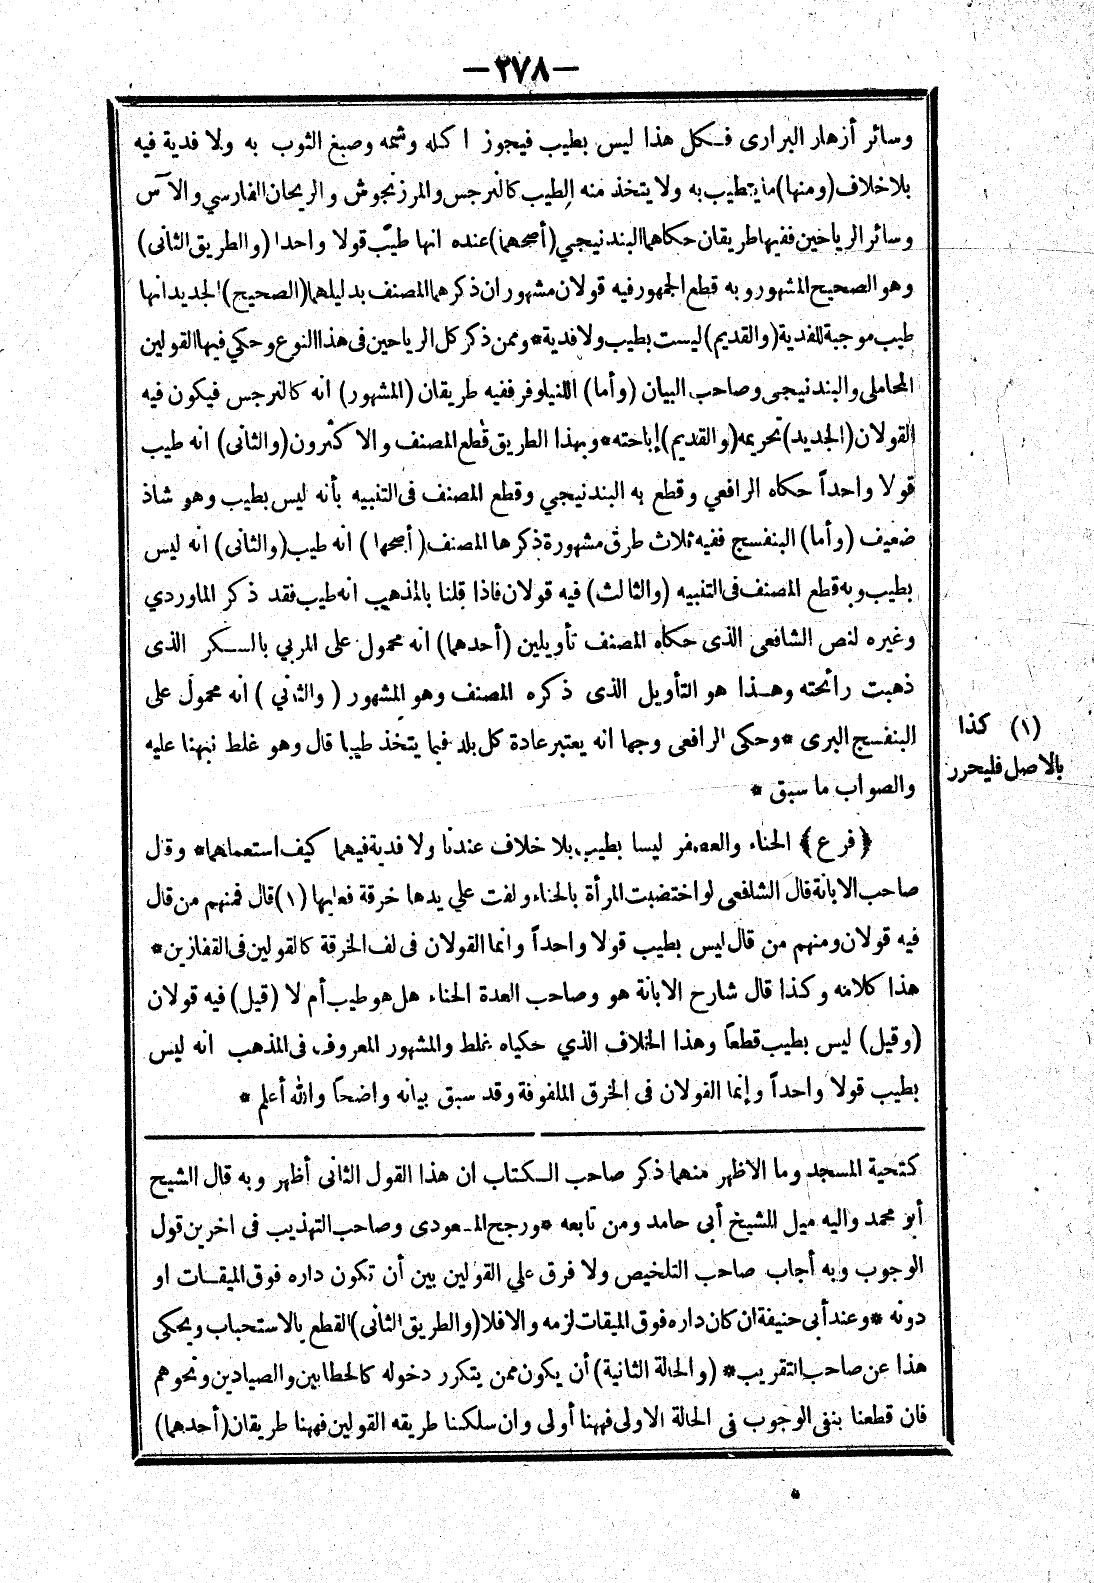 —٢٧٨—
وسائر أزهار البرارى فكل هذا ليس بطيب فيجوز اكله وشمه وصبغ الثوب به ولا فدية فيه
بلا خلاف (ومنها) ما يتطيب به ولا يتخذ منه الطيب كالنرجس والمرزنجوش والريحان الفارسي والآس
وسائر الرياحين ففيها طريقان حكاهما البندنيجي (أصحهما) عنده انها طيب قولا واحدا (والطريق الثانى)
وهو الصحيح المشهور وبه قطع الجمهور فيه قولان مشهوران ذكرهما المصنف بدليلهما (الصحيح) الجديد انها
طيب موجبة للفدية (والقديم) ليست بطيب ولا فدية * وممن ذكر كل الرياحين فى هذا النوع وحكي فيها القولين
المحاملى والبندنيجى وصاحب البيان (وأما) اللنيلوفر ففيه طريقان (المشهور) انه كالنرجس فيكون فيه
القولان (الجديد) تحريمه (والقديم) إباحته * وبهذا الطريق قطع المصنف والاكثرون (والثانى) انه طيب
قولا واحداً حكاه الرافعي وقطع به البندنيجي وقطع المصنف فى التنبيه بأنه ليس بطيب وهو شاذ
ضعيف (وأما) البنفسج ففيه ثلاث طرق مشهورة ذكرها المصنف (أصحها) انه طيب (والثانى) انه ليس
بطيب وبه قطع المصنف فى التنبيه (والثالث) فيه قولان فاذا قلنا بالمذهب انه طيب فقد ذكر الماوردي
وغيره لنص الشافعى الذى حكاه المصنف تأويلين (أحدهما) انه محمول على المربي بالسكر الذى
ذهبت رائحته وهذا هو التأويل الذى ذكره المصنف وهو المشهور (والثانى) انه محمول على
البنفسج البرى * وحكى الرافعى وجها انه يعتبر عادة كل بلد فيما يتخذ طيبا قال وهو غلط نبهنا عليه
والصواب ما سبق *
(١) كذا
بالاصل فليحرر
﴿فرع﴾ الحناء والعصفر ليسا بطيب بلا خلاف عندنا ولا فدية فيهما كيف استعملهما * وقال
صاحب الابانة قال الشافعى لو اختضبت المرأة بالحناء ولفت علي يدها خرقة فعليها (١) قال فمنهم من قال
فيه قولان ومنهم من قال ليس بطيب قولا واحداً وانما القولان فى لف الخرقة كالقولين فى القفازين *
هذا كلامه وكذا قال شارح الابانة هو وصاحب العدة الحناء هل هو طيب أم لا (قيل) فيه قولان
(وقيل) ليس بطيب قطعاً وهذا الخلاف الذي حكياه غلط والمشهور المعروف فى المذهب انه ليس
بطيب قولا واحداً وإنما القولان فى الخرق الملفوفة وقد سبق بيانه واضحاً والله أعلم *
كتحية المسجد وما الاظهر منهما ذكر صاحب الكتاب ان هذا القول الثانى أظهر وبه قال الشيخ
أبو محمد واليه ميل للشيخ أبى حامد ومن تابعه * ورجح المسعودى وصاحب التهذيب فى اخرين قول
الوجوب وبه أجاب صاحب التلخيص ولا فرق علي القولين بين أن تكون داره فوق الميقات او
دونه * وعند أبى حنيفة ان كان داره فوق الميقات لزمه والا فلا (والطريق الثانى) القطع بالاستحباب ويحكى
هذا عن صاحب التقريب * (والحالة الثانية) أن يكون ممن يتكرر دخوله كالحطابين والصيادين ونحوهم
فان قطعنا بنفى الوجوب فى الحالة الاولى فههنا أولى وان سلكنا طريقه القولين فههنا طريقان (أحدهما)